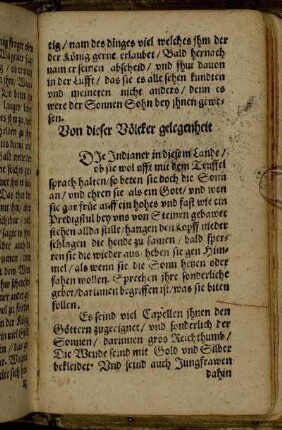 tig / nam des dinges viel welches jhm der
der König gerne erlaubet / Bald hernoch
nam er seinen abscheid / vnd fhur dauon
in der Lufft / das sie es alle sehen kundten
vnd meineten nicht anders / denn es
were der Sonnen Sohn bey jhnen gewe-
sen.
Von dieser Völcker gelegenheit
DIe Indianer in diesem Lande /
ob sie wol offt mit dem Teuffel
sprach halten / so beten sie doch die Sonn
an / vnd ehren sie als ein Gott / vnd wen
sie gar früe auff ein hohes vnd fast wie ein
Predigstul bey vns von Steinen gebawet
stehen allda stille / hangen den Kopff nieder
schlagen die hende zu samen / bald sper-
ren sie die wieder aus / heben sie gen Him-
mel / als wenn sie die Sonn hetzen oder
fahen wollen. Sprechen jhre sonderliche
gebet / darinnen begriffen ist / was sie biten
sollen.
Es seind viel Capellen jhnen den
Göttern zugeeignet / vnd sonderlich der
Sonnen / darinnen gros Reichthumb /
Die Wende seind mit Gold vnd Silber
bekleidet. Vnd seind auch Jungfrawen
dahin